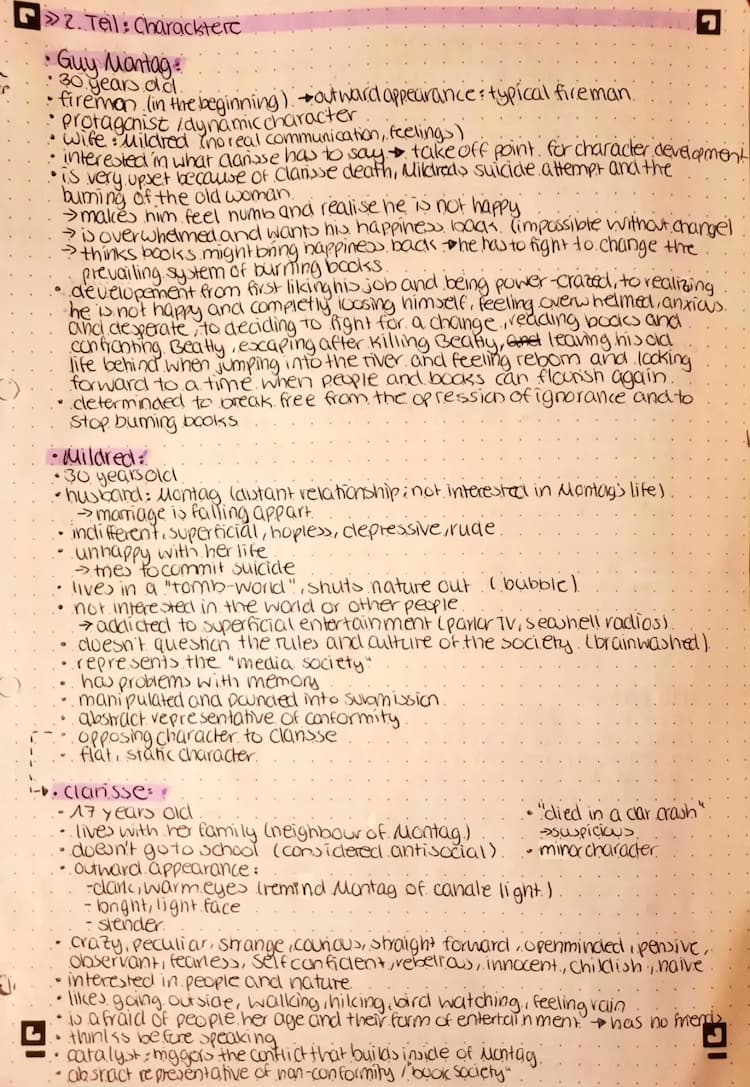 >> 2. Teil: Charackterc
• Guy Montag:
• 30 years old
• fireman (in the beginning) → outward appearance: typical fireman
• protagonist / dynamic character
• wife: Mildred (no real communication, feelings)
• interested in what clarisse has to say → take off point for character development
• is very upset because of Clarisse death, Mildreds suicide attempt and the
burning of the old woman
→ makes him feel numb and realise he is not happy
→ is overwhelmed and wants his happiness back (impossible without change)
→ thinks books might bring happiness back → he has to fight to change the
prevailing system of burning books
• developement from first liking his job and being power-crazed, to realizing
he is not happy and completly loosing himself, feeling overwhelmed, anxious
and desperate, to deciding to fight for a change, reading books and
confronting Beatty, escaping after killing Beatty, and leaving his old
life behind when jumping into the river and feeling reborn and looking
forward to a time when people and books can flourish again
• determinded to break free from the opression of ignorance and to
stop burning books
• Mildred:
• 30 years old
• husband: Montag (distant relationship; not interested in Montag's life)
→ marriage is falling appart
• indifferent, superficial, hopless, depressive, rude
• unhappy with her life
→ tries to commit suicide
• lives in a "tomb-world", shuts nature out (bubble)
• not interested in the world or other people
→ addicted to superficial entertainment (parlor TV, seashell radios)
• doesn't question the rules and culture of the society (brainwashed)
• represents the "media society"
• has problems with memory
• manipulated and pounded into submission
• abstract representative of conformity
• opposing character to clarisse
• flat, static character
• Clarisse:
• 17 years old
• lives with her family (neighbour of Montag)
• doesn't go to school (considered antisocial)
• "died in a car crash"
→ suspicious
• minor character
• outward appearance:
- dark, warm eyes (remind Montag of candle light)
- bright, light face
- slender
• crazy, peculiar, strange, courious, straight forward, openminded, pensive,
observant, fearless, selfconfident, rebellious, innocent, childish, naive
• interested in people and nature
• likes going outside, walking, hiking, bird watching, feeling rain
• is afraid of people her age and their form of entertainment → has no friends
• thinks before speaking
• catalyst: triggers the conflict that builds inside of Montag
• abstract representative of non-conformity / "book society"